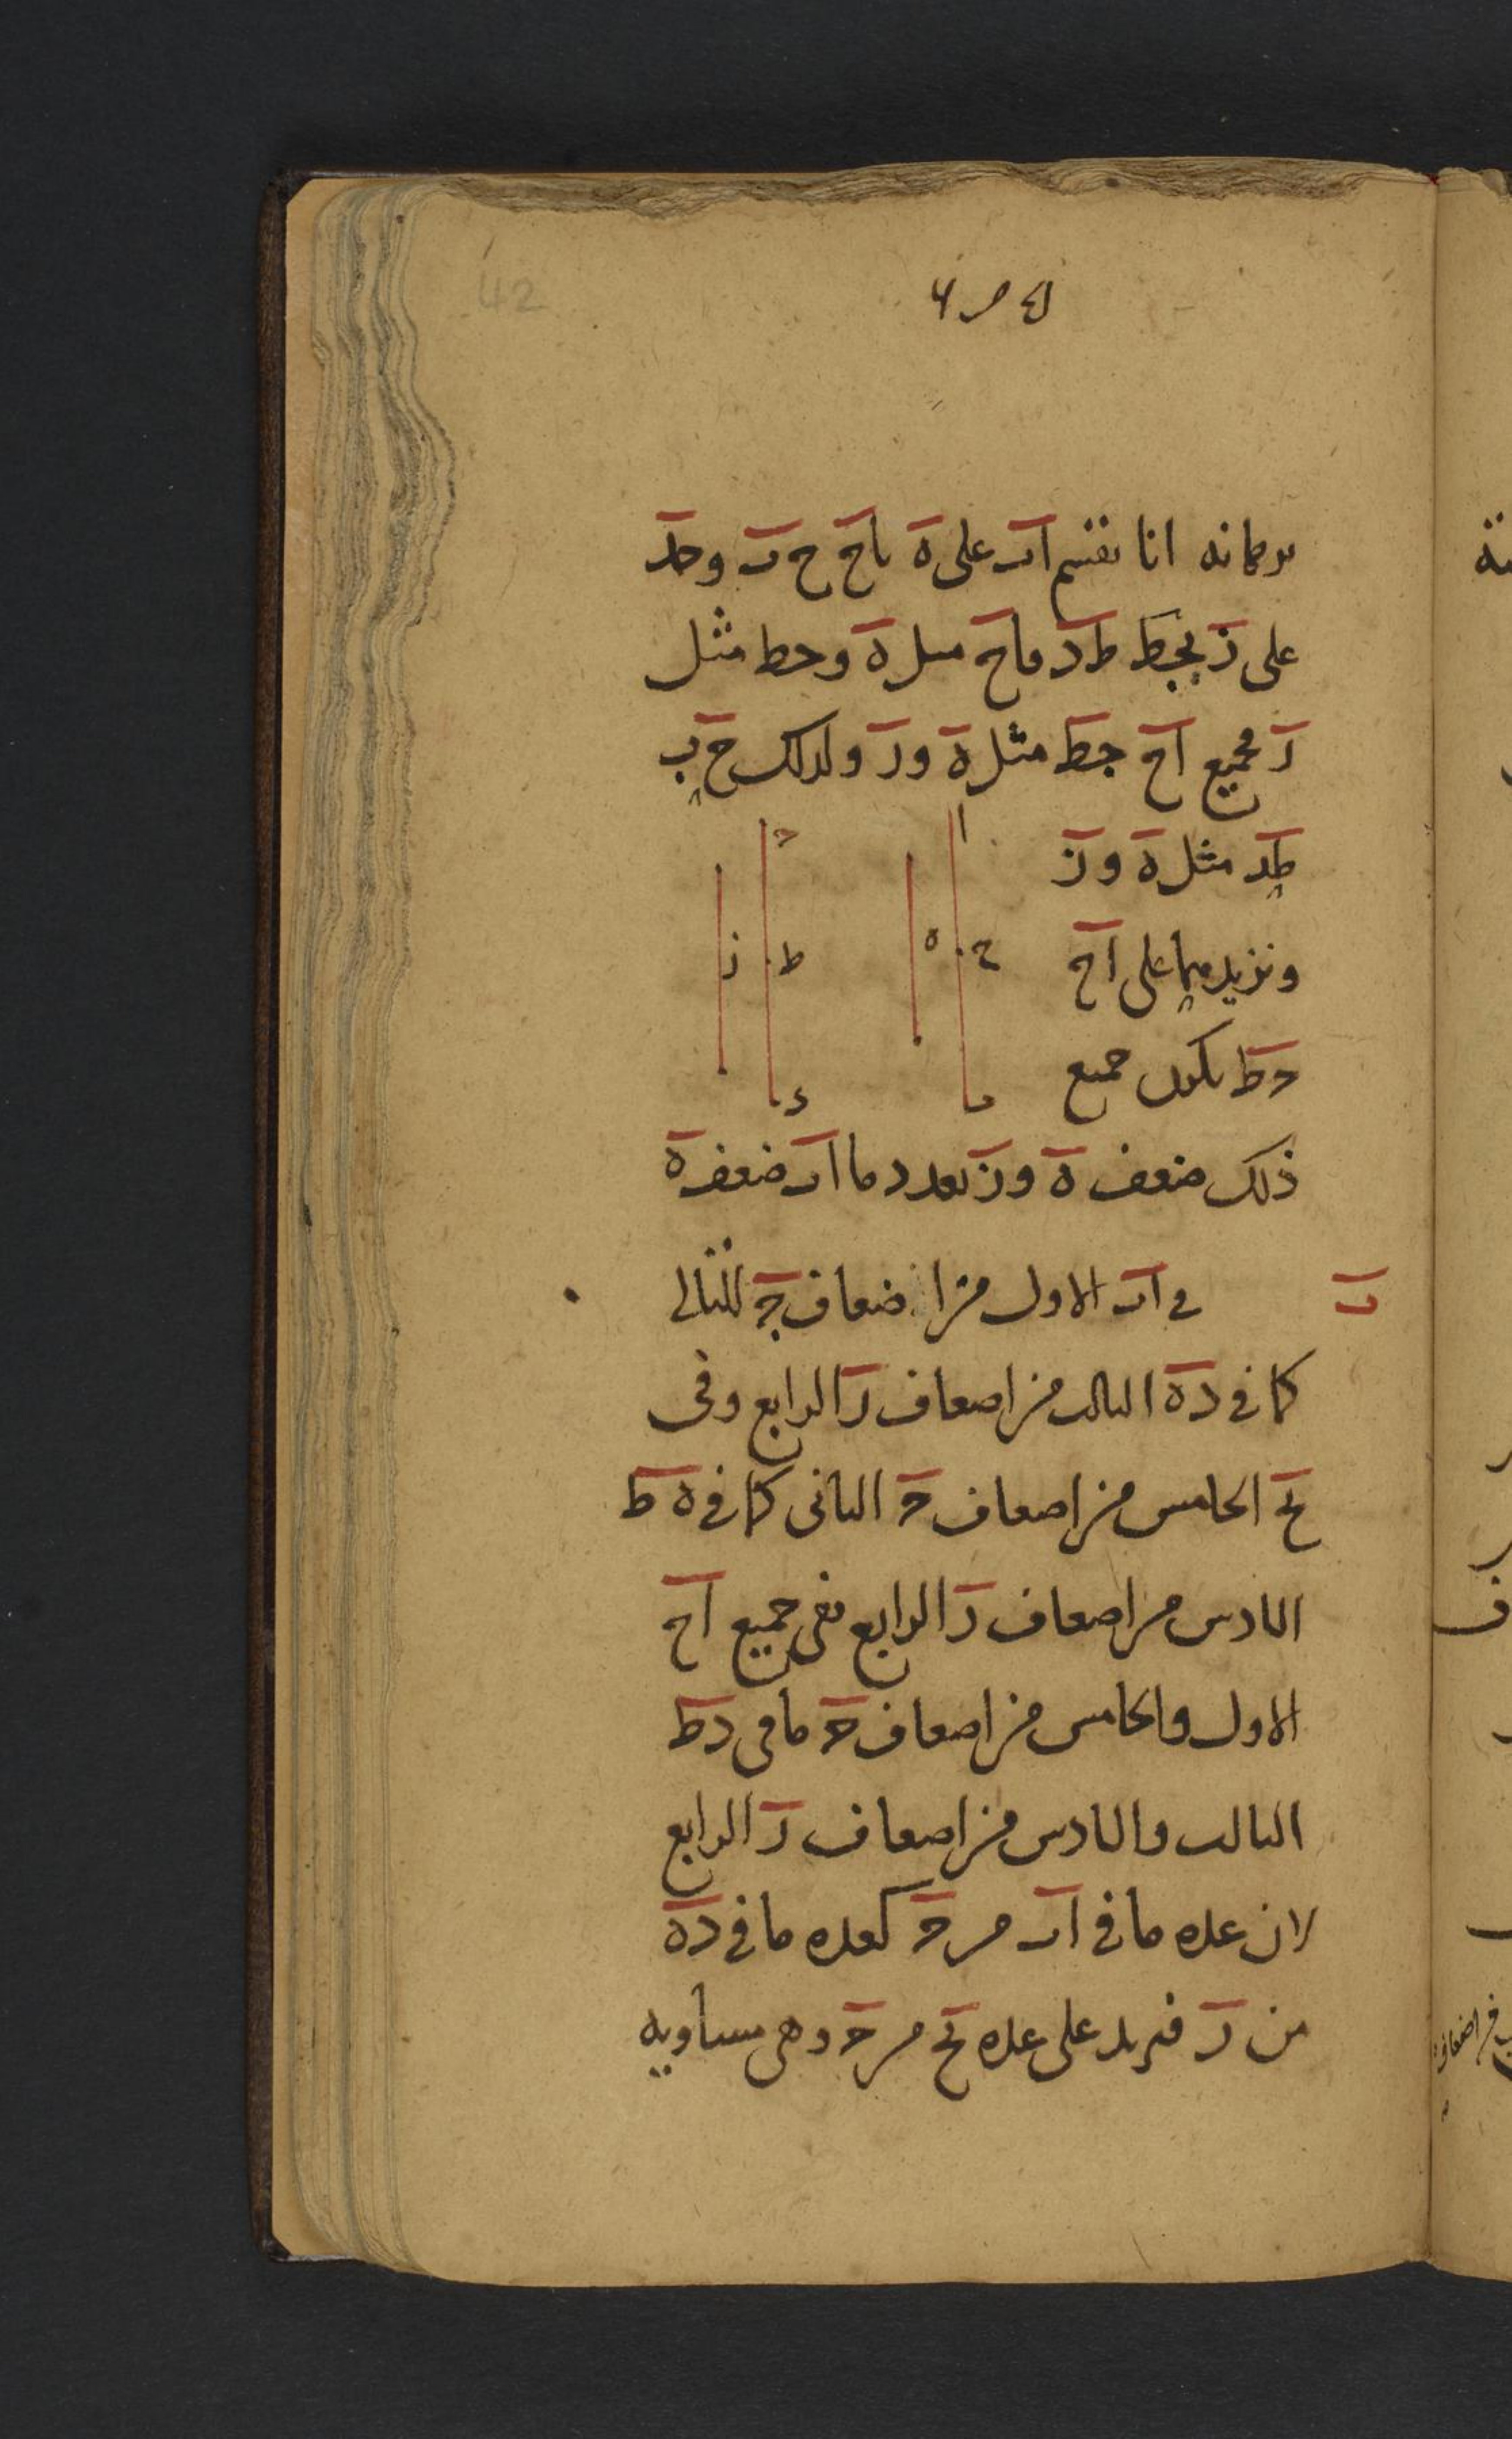 42
برهانه انا نقسم اب على ه باح ح ب وجد
على ز بجط طد فاح مثل ه وجط مثل
ز فجميع اح جط مثل ه وز ولذلك ح ب
طد مثل ه وز
ونزيدهما على اح
جط يكون جميع
ذلك ضعف ه وز بعدد ما اب ضعف ه
ا ح ب ه ج ط د ز
ب
في اب الاول من اضعاف ج الثاني
كما في ده الثالث من اضعاف ز الرابع وفي
بح الخامس من اضعاف ج الثاني كما في ه ط
السادس من اضعاف ز الرابع ففي جميع اح
الاول والخامس من اضعاف ج ما في دط
الثالث والسادس من اضعاف ز الرابع
لان عده ما في اب من ج كعده ما في ده
من ز فنزيد على عده بح من ج وهي مساويه